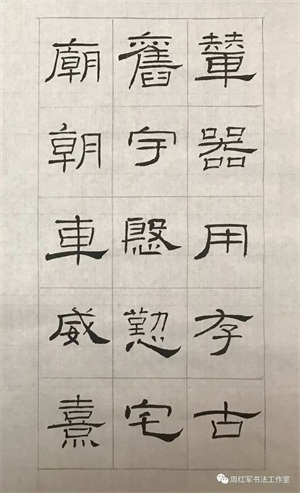 輦器用存古
舊宇慇懃宅
廟朝車威熹
周红军书法工作室